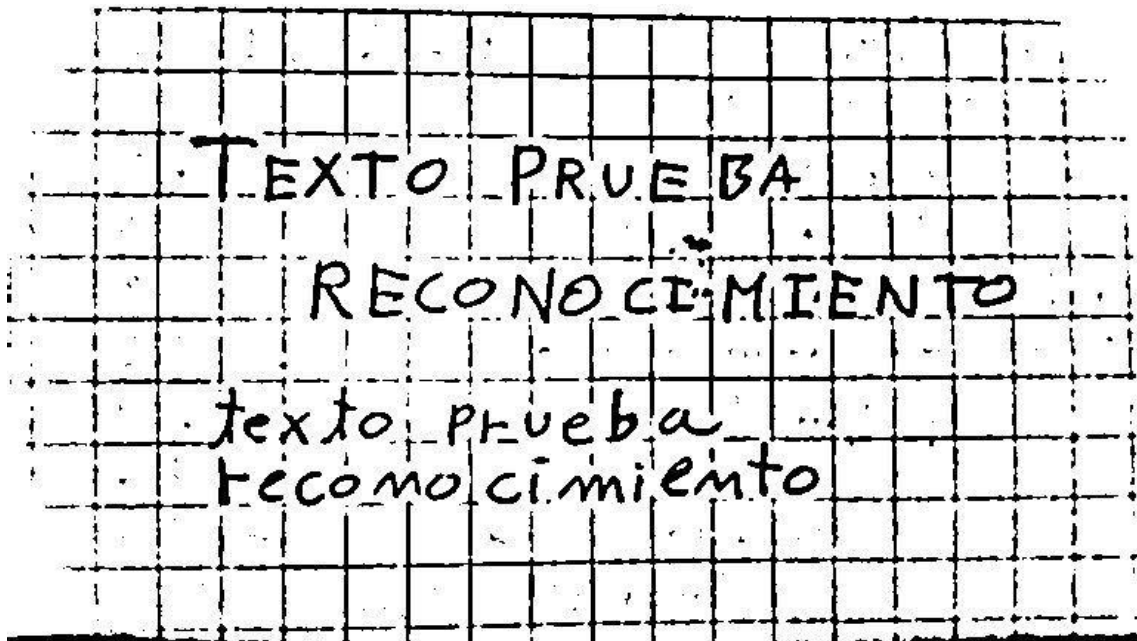 TEXTO PRUEBA
RECONOCIMIENTO
texto prueba
reconocimiento